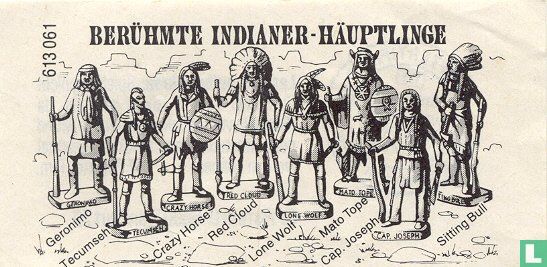 613 061
BERÜHMTE INDIANER-HÄUPTLINGE
GERONIMO
TECUMSEH
CRAZY HORSE
RED CLOUD
LONE WOLF
MATO TOPE
CAP. JOSEPH
Geronimo
Tecumseh
Crazy Horse
Red Cloud
Lone Wolf
Mato Tope
Cap. Joseph
Sitting Bull